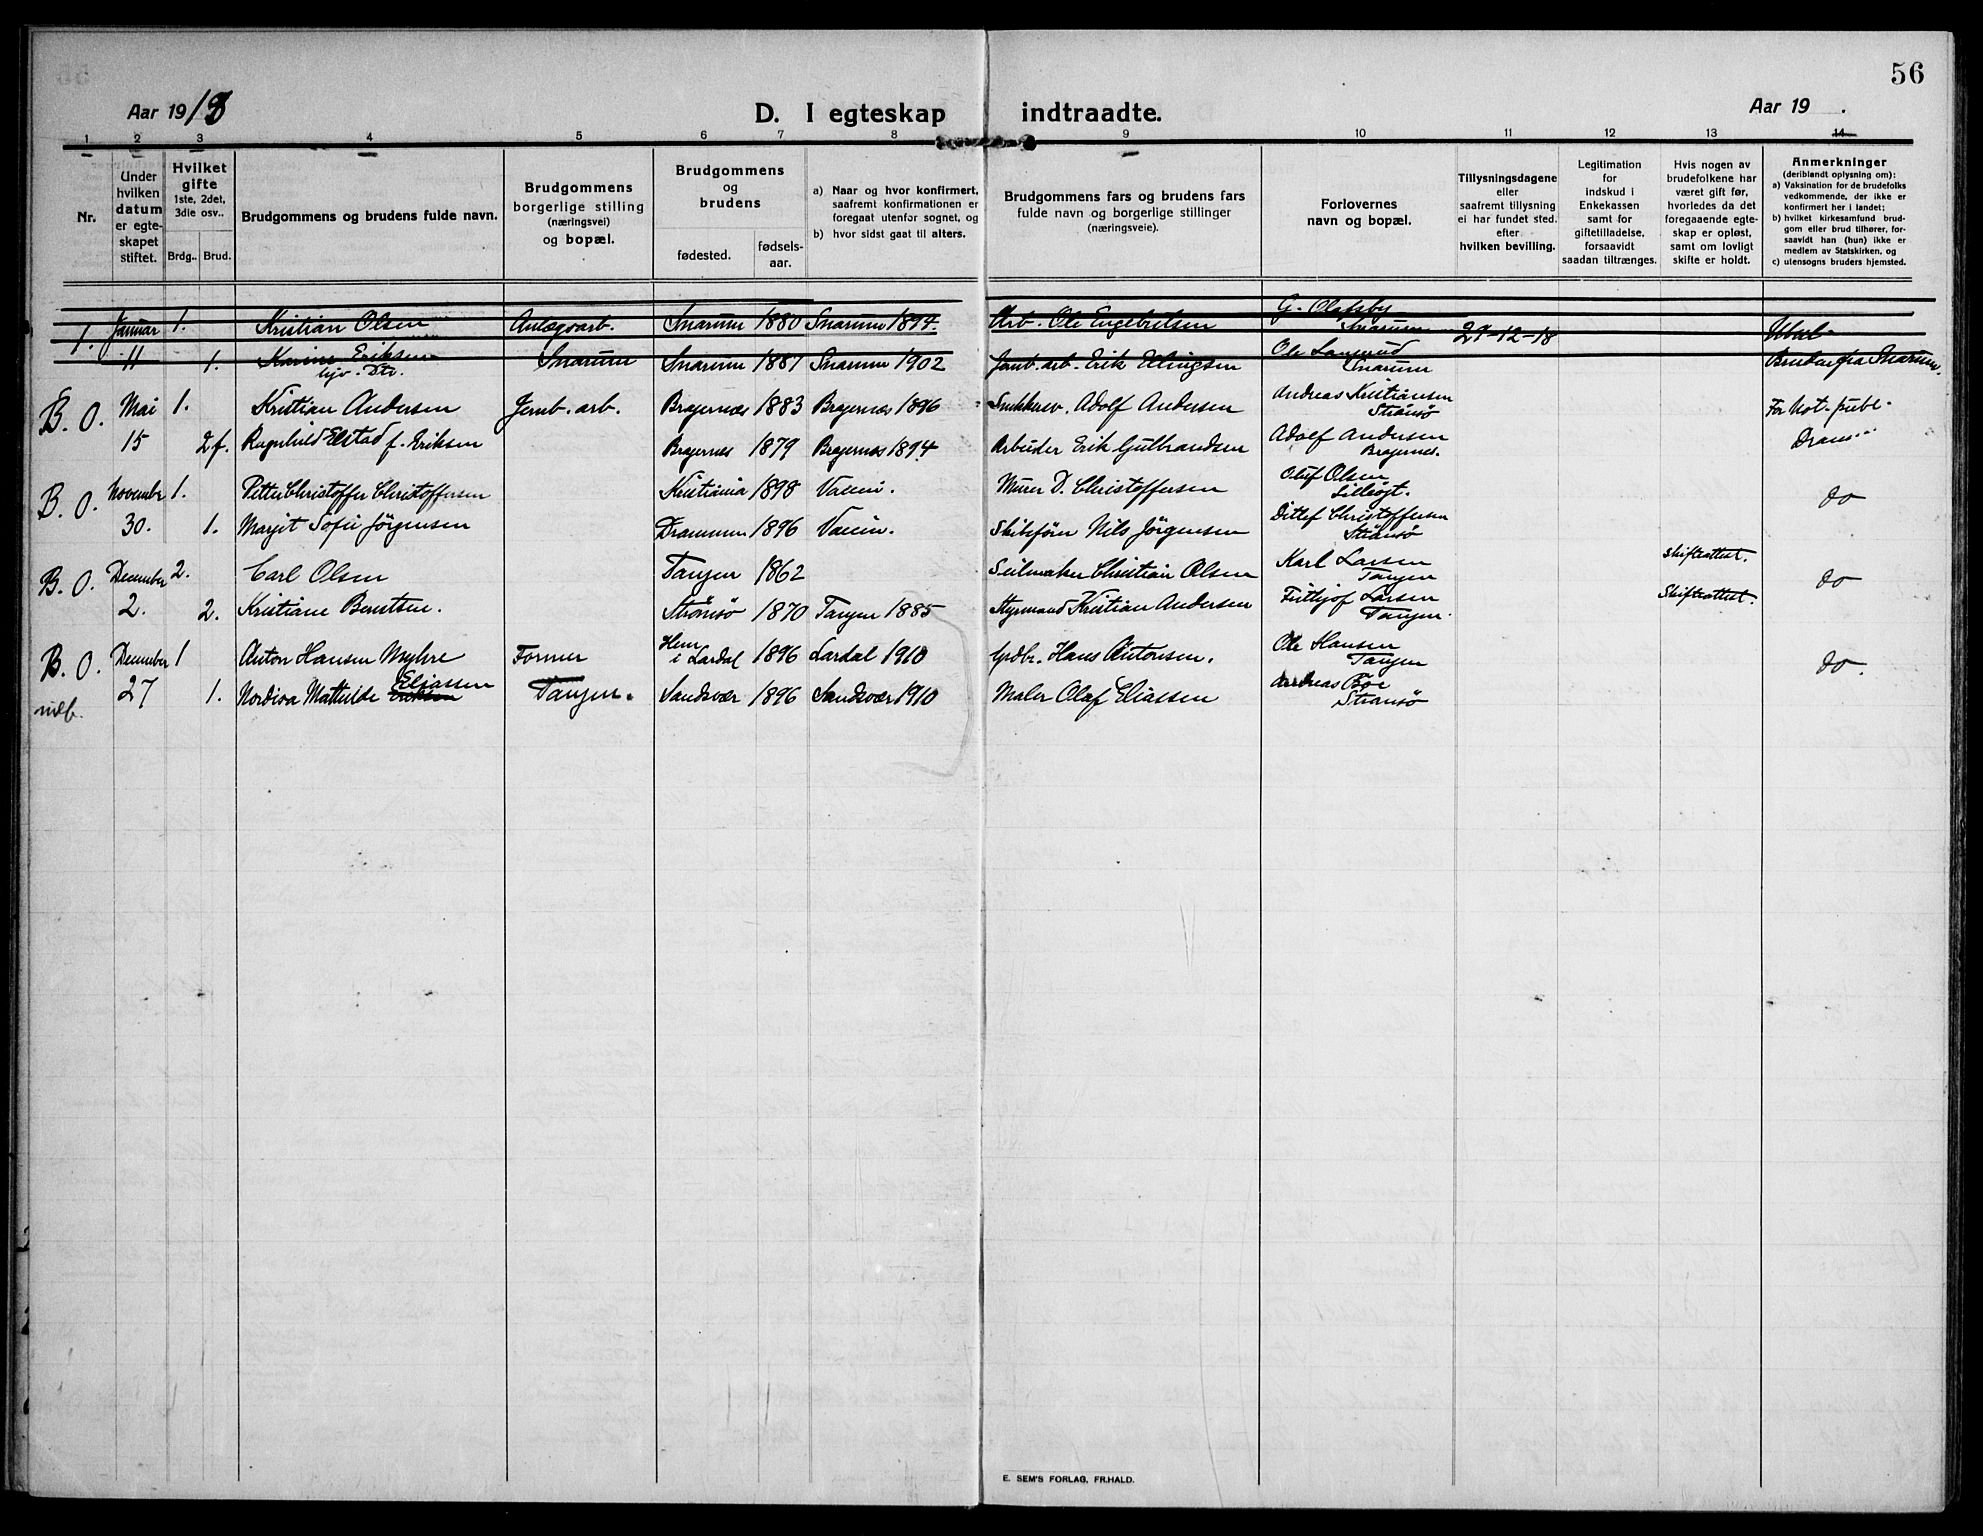 56
Aar 1918
D. I egteskap indtraadte.
Aar 19 .
1 2 3 4 5 6 7 8 9 10 11 12 13 14
Nr.
Under hvilken datum er egte-skapet stiftet.
Hvilket gifte 1ste, 2det, 3die osv..
Brdg.. Brud.
Brudgommens og brudens fulde navn.
Brudgommens borgerlige stilling (næringsvei) og bopæl.
Brudgommens og brudens
fødested. fødsels-aar.
a) Naar og hvor konfirmert, saafremt konfirmationen er foregaat utenfor sognet, og
b) hvor sidst gaat til alters.
Brudgommens fars og brudens fars fulde navn og borgerlige stillinger (næringsveie).
Forlovernes navn og bopæl.
Tillysningsdagene eller saafremt tillysning ei har fundet sted. efter hvilken bevilling.
Legitimation for indskud i Enkekassen samt for giftetilladelse, forsaavidt saadan tiltrænges.
Hvis nogen av brudefolkene har været gift før, hvorledes da det foregaaende egte-skap er opløst, samt om lovligt skifte er holdt.
Anmerkninger (deriblandt oplysning om):
a) Vaksination for de brudefolks vedkommende, der ikke er konfirmert her i landet;
b) hvilket kirkesamfund brud-gom eller brud tilhører, for-saavidt han (hun) ikke er medlem av Statskirken, og
c) utensogns bruders hjemsted.
1. Januar 1. Kristian Olsen Anlægsarb. Snarum 1880 Snarum 1894. Arb. Ole Engebretsen G. Olafsby Snarum 29-12-18
11 1. Karine Eriksen hjv. Dtr. Snarum Snarum 1887 Snarum 1902 Jernb. arb. Erik Ellingsen Ole Snarum Bruden fra Snarum.
B. O. Mai 1. Kristian Andersen Jernb. arb. Bragernæs 1883 Bragernæs 1896 Snekkersv. Adolf Andersen Andreas Kristiansen Strømsø For Not. publ.
15 2 f. Ragnhild Elstad f. Eriksen Bragernes 1879 Bragernæs 1894 Arbeider Erik Gulbrandsen Adolf Andersen Bragernes. Dram
B. O. November 1. Petter Christoffer Christoffersen Kristiania 1898 Murer D. Christoffersen Oluf Olsen do
30. 1. Margit Sofie Jörgensen Drammen 1896 Skibsförer Nils Jörgensen Ditlef Christoffersen Strømsø
B. O. December 2. Carl Olsen Tangen 1862 Seilmaker Christian Olsen Karl Larsen Tangen Skifteattest. do
2. 2. Kristiane Berntsen. Strömsö 1870 Tangen 1885 Styrmand Kristian Andersen Fritjof Larsen Tangen. Skifteattest.
B. O. December 1 Anton Hansen Myhre Former Hem i Lardal 1896 Lardal 1910 Grdbr. Hans Antonsen. Ole Hansen Tangen do.
27 1. Nordiva Mathilde Eriksen Eliassen Tangen. Sandsvær 1896 Sandsvær 1910 Maler Olaf Eliassen Andreas Bøe Strømsø
E. SEM'S FORLAG, FR.HALD.